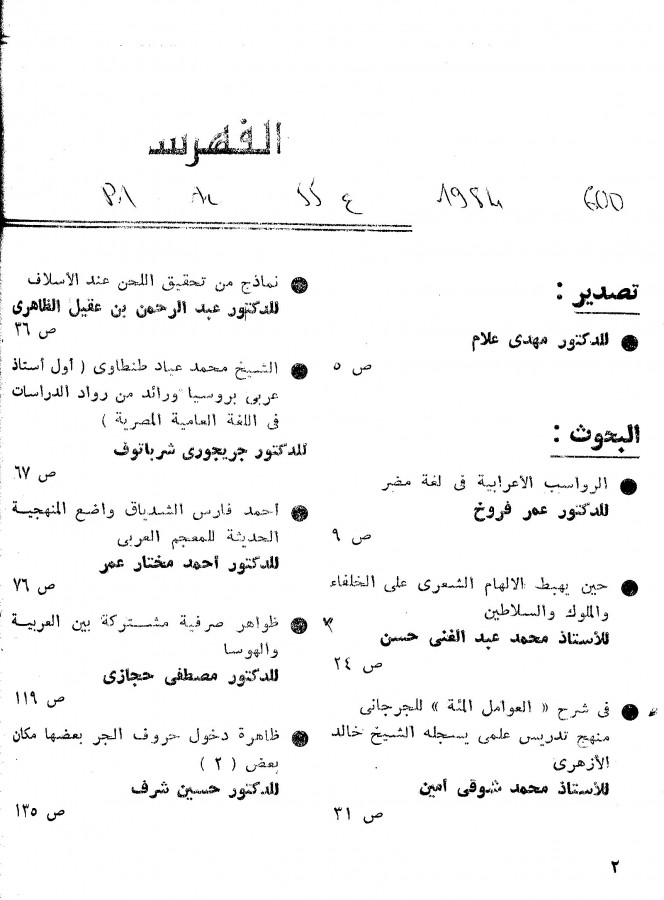 الفهرس
1984 600
تصدير :
للدكتور مهدى علام
ص ٥
البحوث :
الرواسب الأعرابية فى لغة مضر
للدكتور عمر فروخ
ص ٩
حين يهبط الالهام الشعرى على الخلفاء
والملوك والسلاطين
للأستاذ محمد عبد الغنى حسن
ص ٢٤
فى شرح « العوامل المئة » للجرجانى
منهج تدريس علمى يسجله الشيخ خالد
الأزهرى
للأستاذ محمد شوقى أمين
ص ٣١
نماذج من تحقيق اللحن عند الأسلاف
للدكتور عبد الرحمن بن عقيل الظاهرى
ص ٣٦
الشيخ محمد عياد طنطاوى ( أول أستاذ
عربى بروسيا ورائد من رواد الدراسات
فى اللغة العامية المصرية )
للدكتور جريجورى شرباتوف
ص ٦٧
أحمد فارس الشدياق واضع المنهجية
الحديثة للمعجم العربى
للدكتور أحمد مختار عمر
ص ٧٦
ظواهر صرفية مشتركة بين العربية
والهوسا
للدكتور مصطفى حجازى
ص ١١٩
ظاهرة دخول حروف الجر بعضها مكان
بعض ( ٢ )
للدكتور حسين شرف
ص ١٣٥
٢